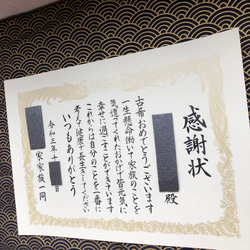 感謝状
殿
古希おめでとうございます
一生懸命働いて家族のことを
気遣ってくれたおかげで皆元気に
幸せに過ごすことができています
これからは自分のことを一番に
考えて健康で長生きしてください
いつもありがとう
令和三年十
家家族一同